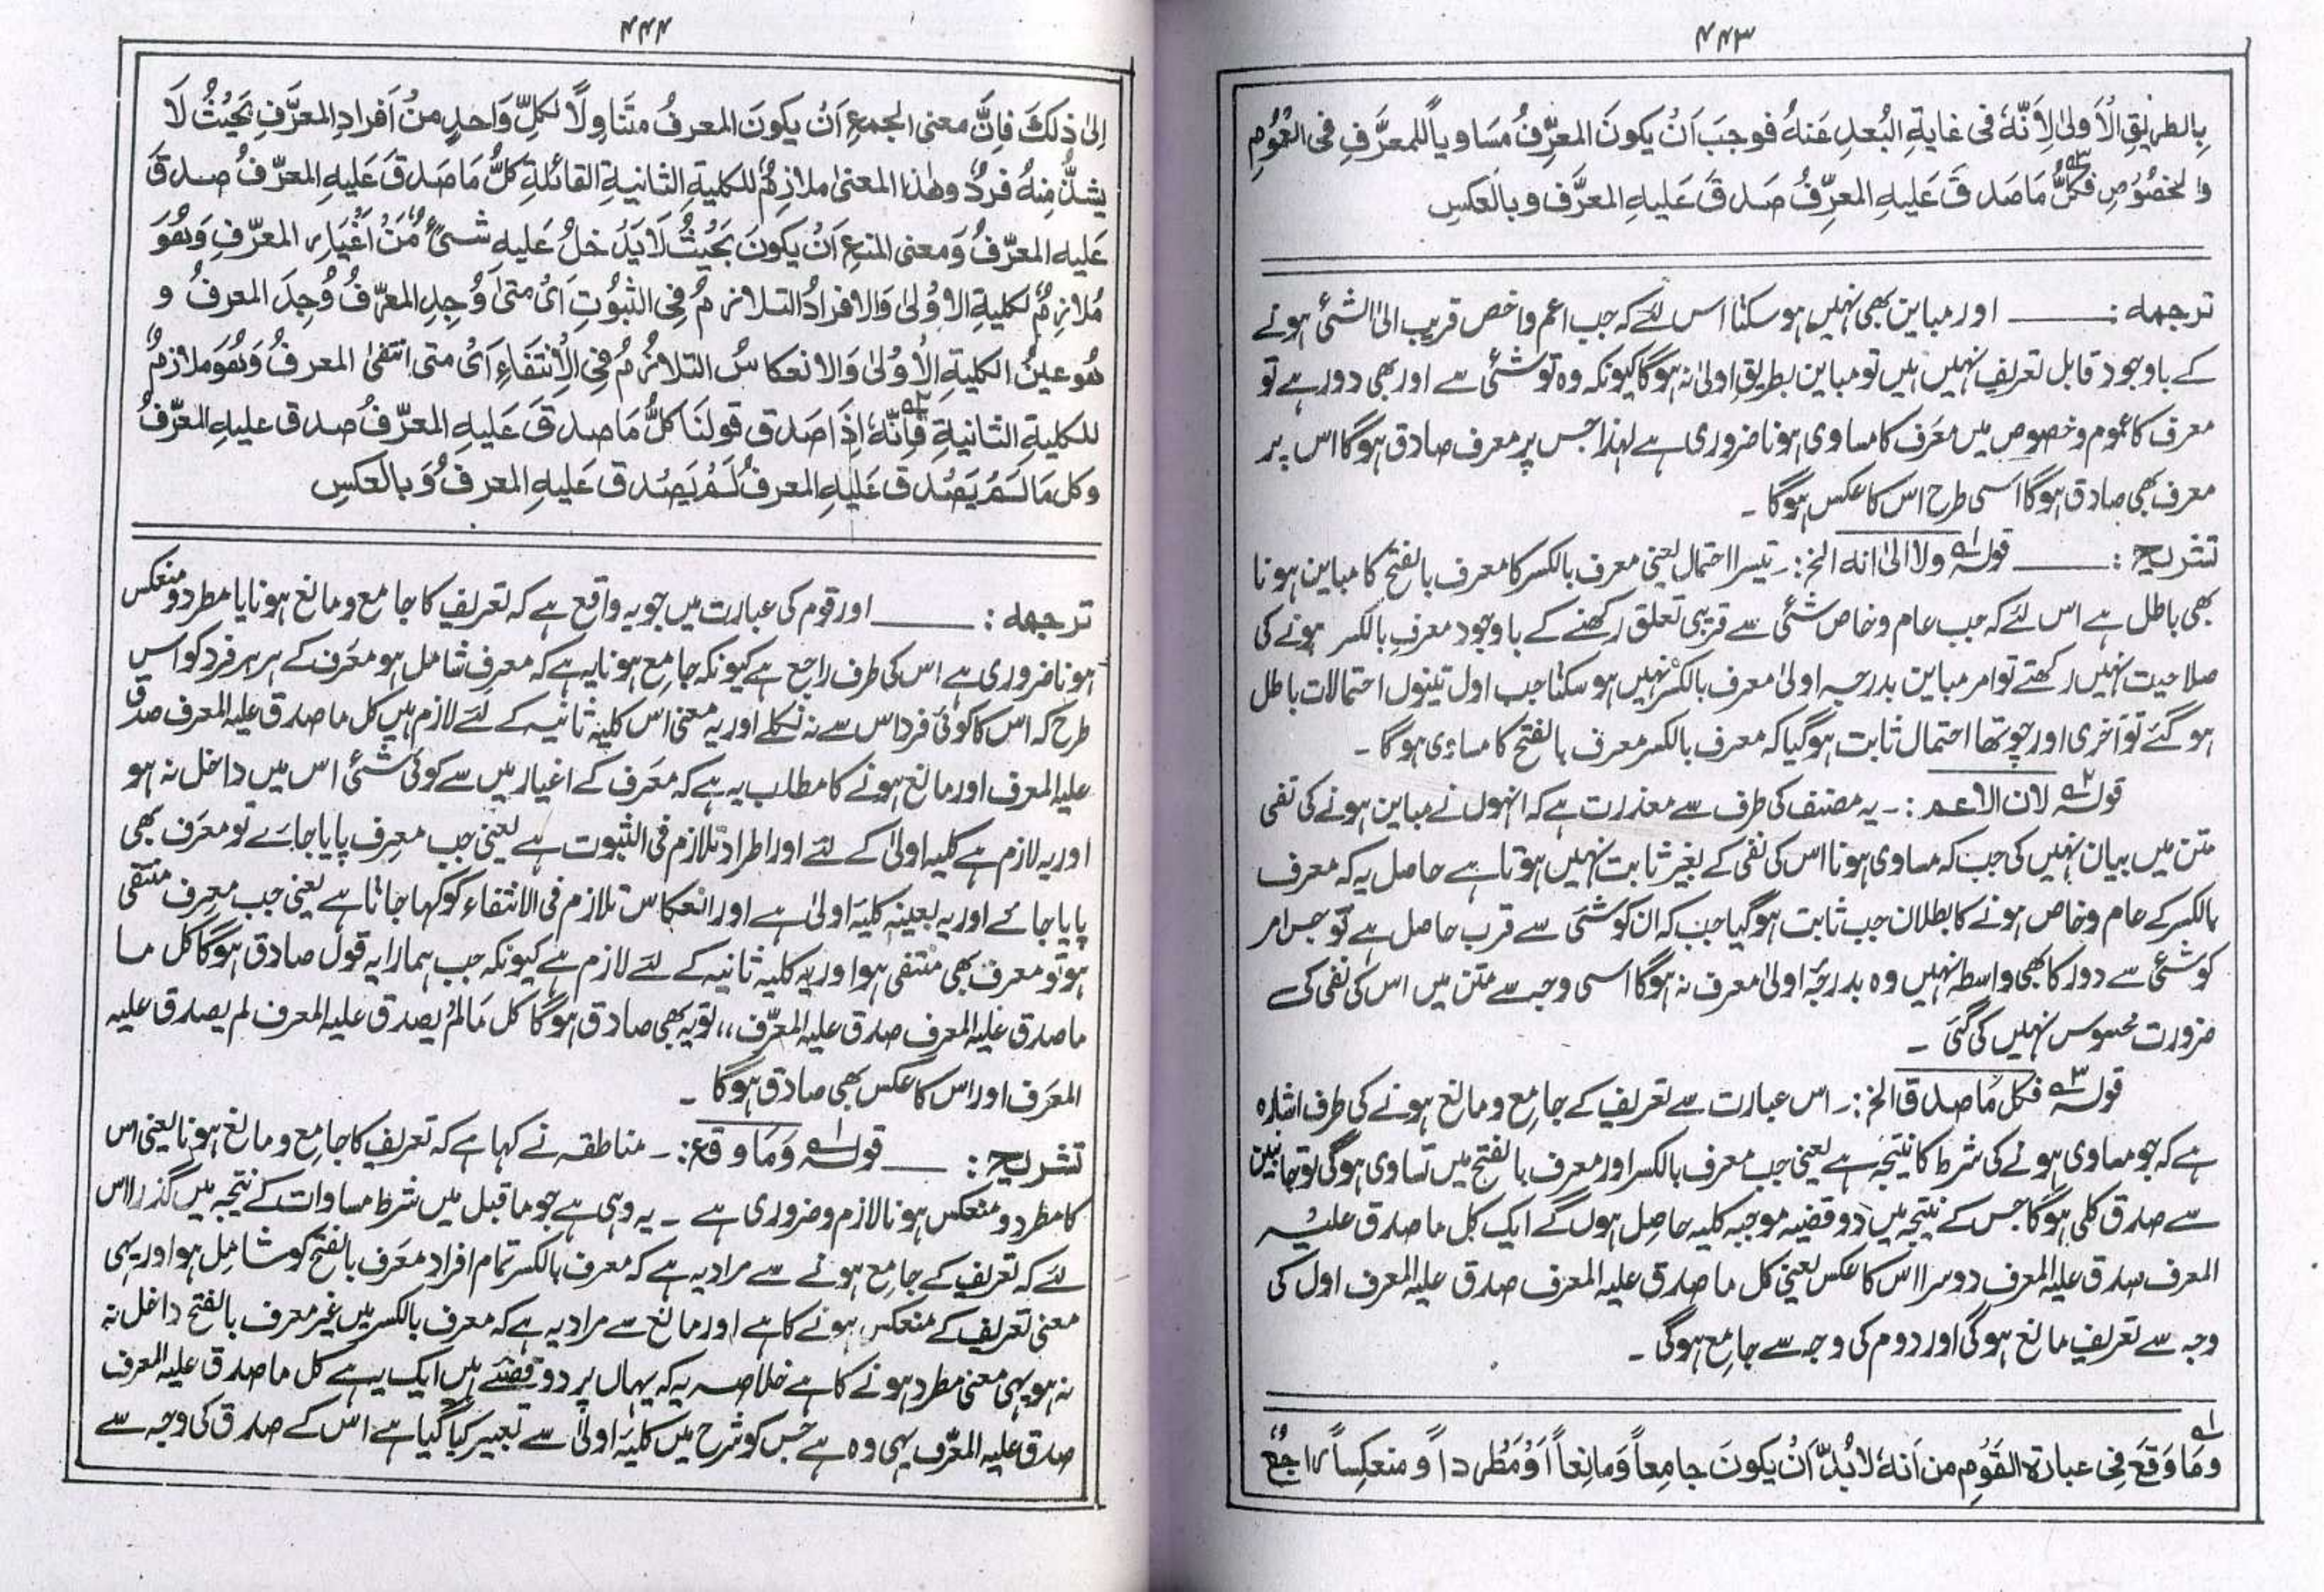 ۴۴۳
بِالطریقِ الْاَولیٰ لِاَنَّہٗ فی غایۃِ البُعدِ عَنہُ فوجبَ اَنْ یکونَ المعرِّفُ مُسَاویاً للمعرَّفِ فی العُمُومِ
والخصُوصِ فکلُّ مَا صَدقَ عَلیہِ المعرِّفُ صَدقَ عَلیہِ المعرَّف وبالعکسِ
ترجمہ :ــــــ اور مباین بھی نہیں ہوسکتا اس لئے کہ جب اعم واخص قریب الی الشئی ہونے
کے باوجود قابل تعریف نہیں ہیں تو مباین بطریق اولیٰ نہ ہوگا کیونکہ وہ تو شئی سے اور بھی دور ہے تو
معرف کا عموم وخصوص میں معَرف کا مساوی ہونا ضروری ہے لہذا جس پر معرف صادق ہوگا اس پر
معرف بھی صادق ہوگا اسی طرح اس کا عکس ہوگا ۔
تشریح :ــــــ قولہ۱ ولا الیٰ انہ الخ :۔ تیسرا احتمال یعنی معرف بالکسر کا معرف بالفتح کا مباین ہونا
بھی باطل ہے اس لئے کہ جب عام وخاص شئی سے قریبی تعلق رکھنے کے باوجود معرفِ بالکسر ہونے کی
صلاحیت نہیں رکھتے تو امر مباین بدرجہ اولیٰ معرف بالکسر نہیں ہوسکتا جب اول تینوں احتمالات باطل
ہوگئے تو آخری اور چوتھا احتمال ثابت ہوگیا کہ معرف بالکسر معرف بالفتح کا مساوی ہوگا ۔
قولہ۲ لان الاعم :۔ یہ مصنف کی طرف سے معذرت ہے کہ انہوں نے مباین ہونے کی نفی
متن میں بیان نہیں کی جب کہ مساوی ہونا اس کی نفی کے بغیر ثابت نہیں ہوتا ہے حاصل یہ کہ معرف
بالکسر کے عام وخاص ہونے کا بطلان جب ثابت ہوگیا جب کہ ان کو شئی سے قرب حاصل ہے تو جس امر
کو شئی سے دور کا بھی واسطہ نہیں وہ بدرجہ اولیٰ معرف نہ ہوگا اسی وجہ سے متن میں اس کی نفی کی
ضرورت محسوس نہیں کی گئی ۔
قولہ۳ فکل مَا صدق الخ :۔ اس عبارت سے تعریف کے جامع ومانع ہونے کی طرف اشارہ
ہے کہ جو مساوی ہونے کی شرط کا نتیجہ ہے یعنی جب معرف بالکسر اور معرف بالفتح میں تساوی ہوگی تو جانبین
سے صدق کلی ہوگا جس کے نتیجہ میں دو قضیہ موجبہ کلیہ حاصل ہوں گے ایک کل ما صدق علیہ
المعرف صدق علیہ المعرف دوسرا اس کا عکس یعنی کل ما صدق علیہ المعرف صدق علیہ المعرف اول کی
وجہ سے تعریف مانع ہوگی اور دوم کی وجہ سے جامع ہوگی ۔
۱ وَمَا وَقعَ فِی عبارۃِ القَوْمِ من اَنہ لابُدَّ اَنْ یکونَ جامِعاً وَمانِعاً اَوْ مُطْرِداً ومنعکِساً راجعٌ
۴۴۴
اِلیٰ ذٰلکَ فاِنَّ معنی الجمعِ اَنْ یکونَ المعرفُ متَناوِلاً لکلِّ وَاحدٍ منْ اَفرادِ المعرَّفِ بحَیْثُ لَا
یشذُّ مِنہُ فردٌ وھٰذا المعنیٰ ملازِمٌ للکلیۃِ الثانیۃِ القائلۃِ کلُّ مَا صَدقَ عَلیہِ المعرّفُ صدقَ
عَلیہِ المعرّفُ وَمعنی المنعِ اَنْ یکونَ بحَیْثُ لَایَدْخلُ عَلیہ شئیٌ مّنْ اَغْیَارِ المعرّفِ وَھُوَ
مُلازِمٌ لکلیۃِ الاوْلیٰ وَالافرادُ التلازمُ فِی الثبُوْتِ اَیْ متیٰ وُجِدِ المعرّفُ وُجِدَ المعرفُ و
ھُوعینُ الکلیۃِ الْاُوْلیٰ وَالانعکاسُ التلازُمُ فِی الْاِنْتفَاءِ اَیْ متی انتفیٰ المعرفُ وَھُوَ ملازمٌ
للکلیۃِ الثانیۃِ فَاِنَّہٗ۲ اِذَا صَدق قولنَا کلُّ مَا صدقَ عَلیہِ المعرّفُ صدق علیہِ المعرّفُ
وکل مَا لَمْ یَصْدق عَلیہِ المعرفُ لَمْ یَصْدق عَلیہِ المعرفُ وَبالعکسِ
ترجمہ :ــــــ اور قوم کی عبارت میں جو یہ واقع ہے کہ تعریف کا جامع ومانع ہونا یا مطرد ومنعکس
ہونا ضروری ہے اس کی طرف راجع ہے کیونکہ جامع ہونا یہ ہے کہ معرِف شامل ہو معَرف کے ہر ہر فرد کو اس
طرح کہ اس کا کوئی فرد اس سے نہ نکلے اور یہ معنی اس کلیۃ ثانیہ کے لئے لازم ہیں کل ما صدق علیہ المعرف صدق
علیہ المعرف اور مانع ہونے کا مطلب یہ ہے کہ معَرف کے اغیار میں سے کوئی شئی اس میں داخل نہ ہو
اور یہ لازم ہے کلیہ اولیٰ کے لئے اور اطراد تلازم فی الثبوت ہے یعنی جب معرِف پایا جائے تو معَرف بھی
پایا جائے اور یہ بعینہ کلیہ اولیٰ ہے اور انعکاس تلازم فی الانتفاء کو کہا جاتا ہے یعنی جب معرِف منتفی
ہو تو معرف بھی منتفی ہو اور یہ کلیہ ثانیہ کے لئے لازم ہے کیونکہ جب ہمارا یہ قول صادق ہوگا کل ما
ما صدق علیہ المعرف صدق علیہ المعرّف،، تو یہ بھی صادق ہوگا کل مَالمْ یصدق علیہ المعرف لم یصدق علیہ
المعَرف اور اس کا عکس بھی صادق ہوگا ۔
تشریح :ــــــ قولہ۱ وَمَا وقع :۔ مناطقہ نے کہا ہے کہ تعریف کا جامع ومانع ہونا یعنی اس
کا مطرد ومنعکس ہونا لازم وضروری ہے ۔ یہ وہی ہے جو ماقبل میں شرط مساوات کے نتیجہ میں گذرا اس
لئے کہ تعریف کے جامع ہونے سے مراد یہ ہے کہ معرف بالکسر تمام افراد معَرف بالفتح کو شامل ہو اور یہی
معنی تعریف کے منعکس ہونے کا ہے اور مانع سے مراد یہ ہے کہ معرف بالکسر میں غیر معرف بالفتح داخل نہ
نہ ہو یہی معنی مطرد ہونے کا ہے خلاصہ یہ کہ یہاں پر دو قضئے ہیں ایک یہ ہے کل ما صدق علیہ المعرف
صدق علیہ المعرّف یہی وہ ہے جس کو شرح میں کلیہ اولیٰ سے تعبیر کیا گیا ہے اس کے صدق کی وجہ سے